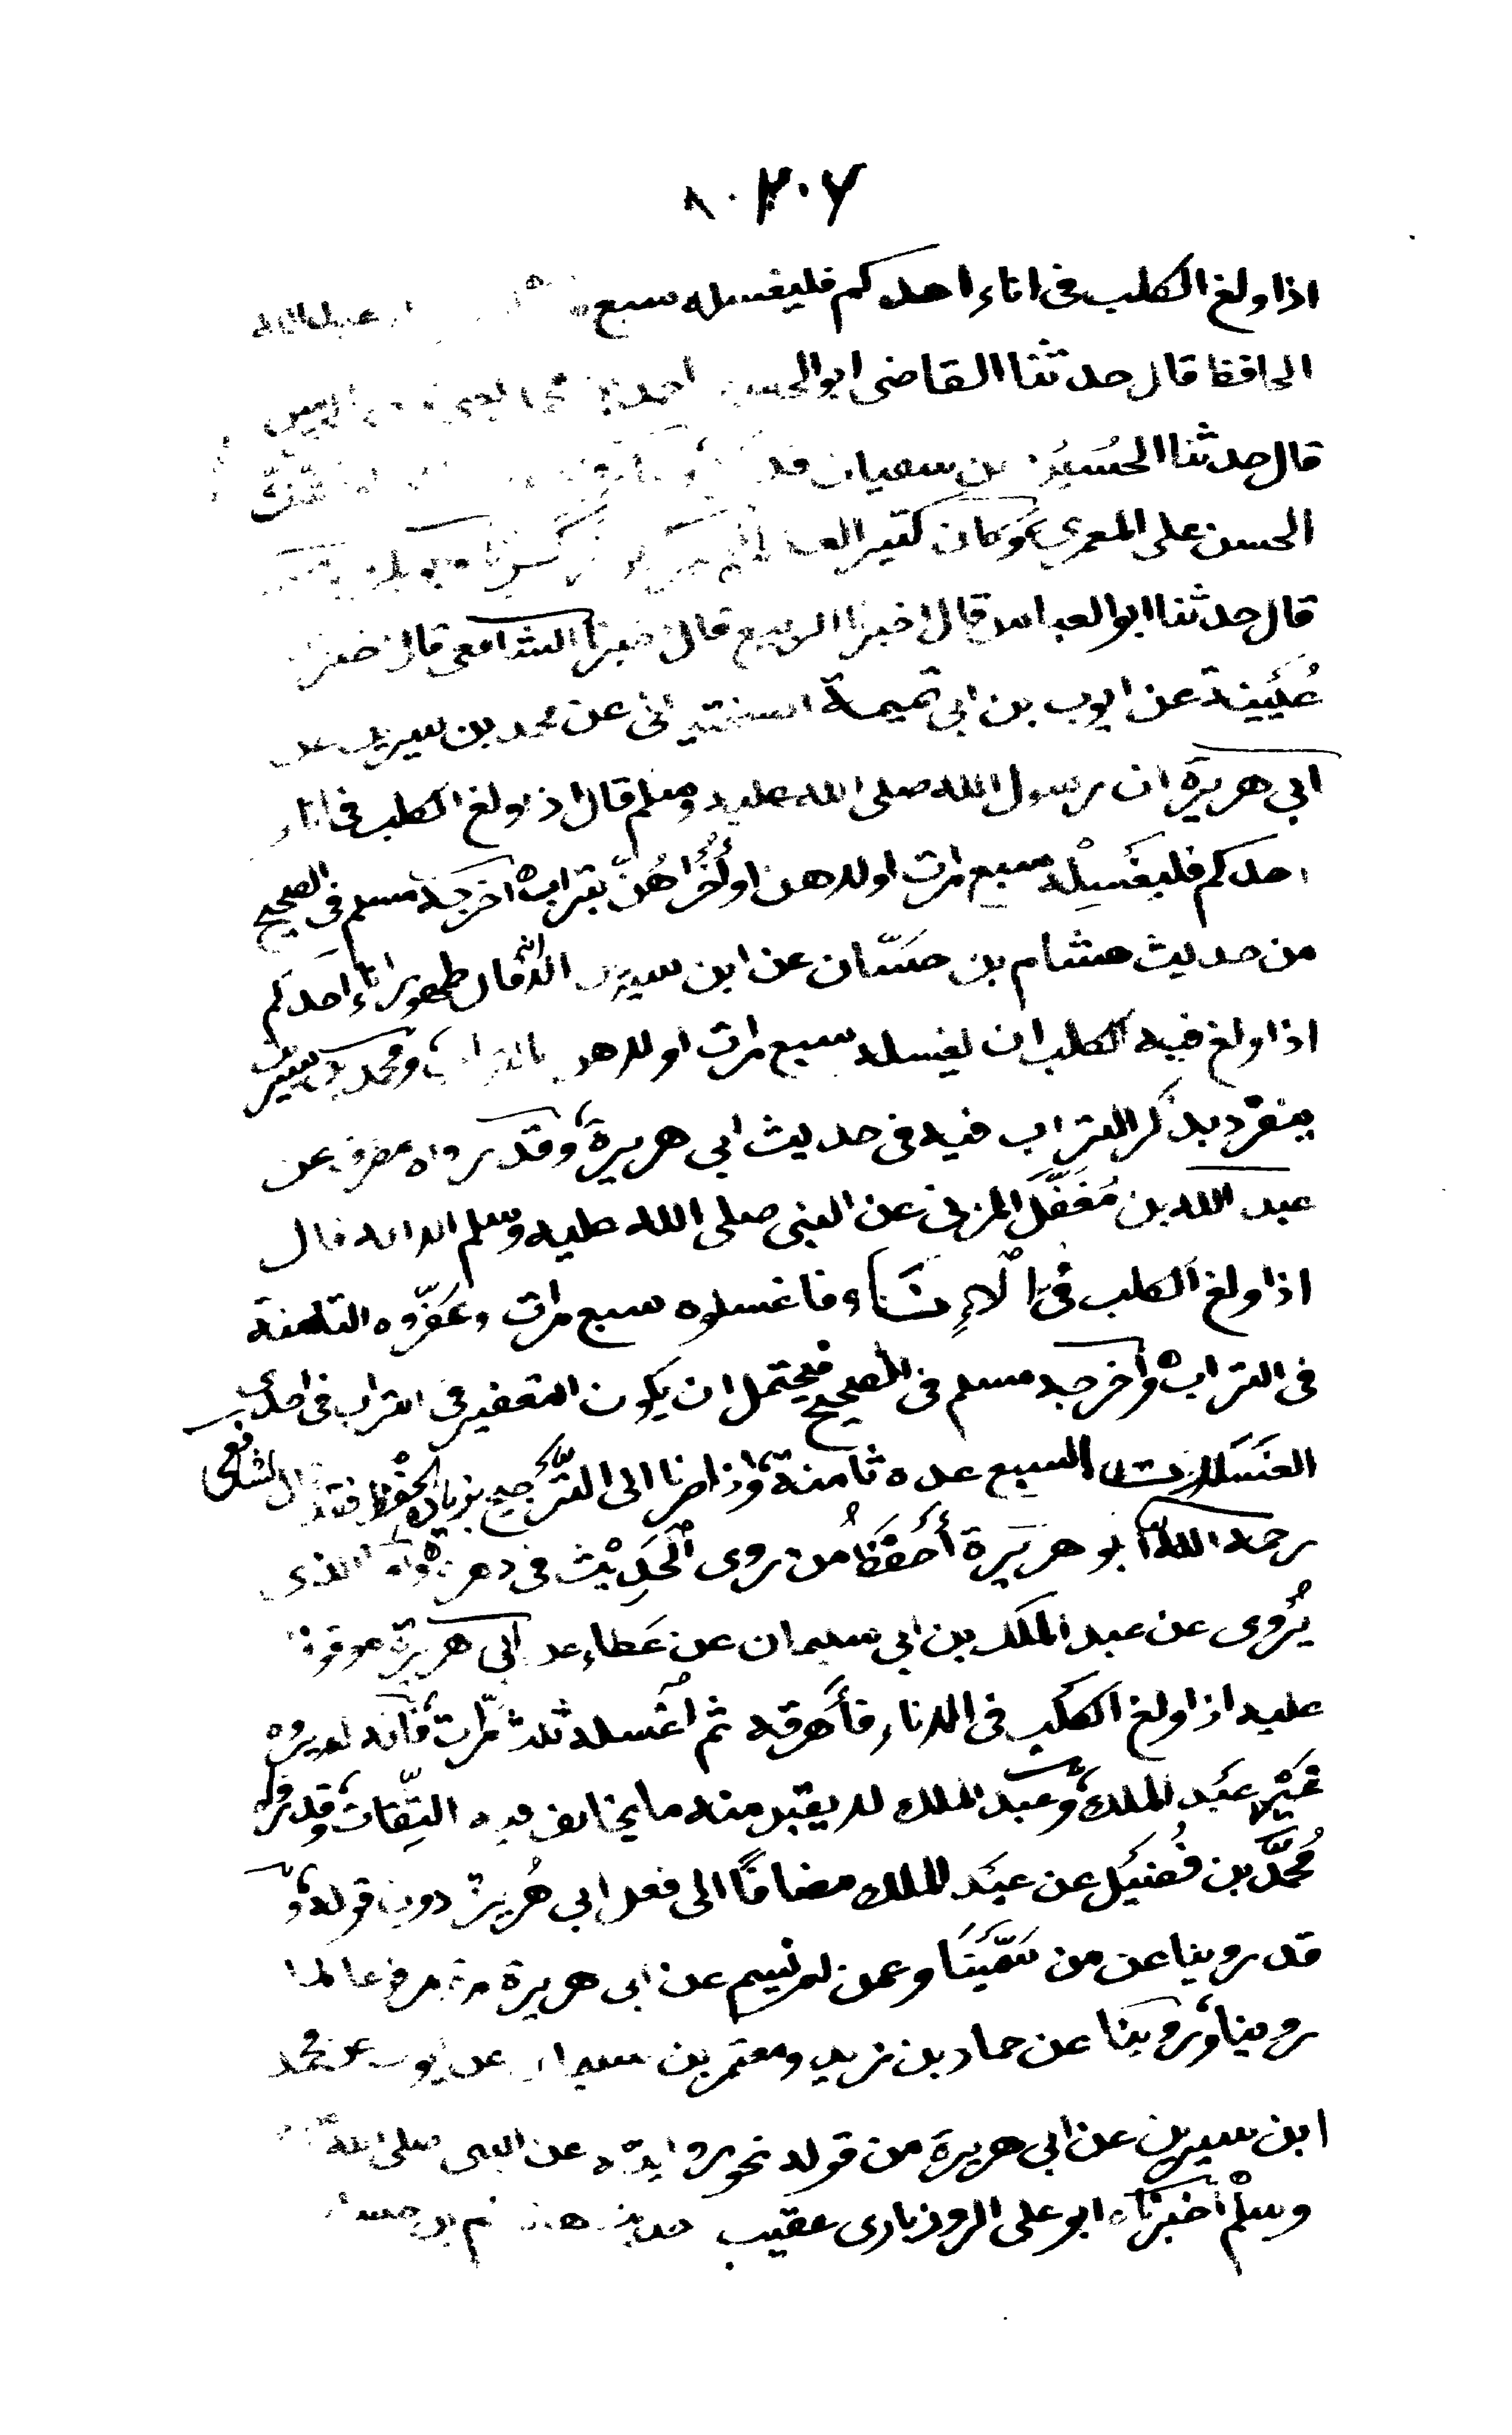 ٨٠ ٢٠٧
اذا ولغ الكلب فى اناء احدكم فليغسله سبع عبد الله
الحافظ قال حدثنا القاضى ابو الحسن احمد بن
قال حدثنا الحسين بن
الحسن على المعمرى وكان كثير
قال حدثنا ابو العباس قال اخبرنا الربيع قال اخبرنا الشافعى قال
عُيَينة عن ايوب بن ابى تميمة السختيانى عن محمد بن سيرين عن
ابى هريرة ان رسول الله صلى الله عليه وسلم قال اذا ولغ الكلب فى اناء
احدكم فليغسله سبع مرات اولاهن او اُخراهُنّ بتراب اخرجه مسلم فى الصحيح
من حديث هشام بن حسّان عن ابن سيرين الا انه قال طهور اناء احدكم
اذا ولغ فيه الكلب ان يغسله سبع مرات اولاهن بالتراب ومحمد بن سيرين
ينفرد بذكر التراب فيه فى حديث ابى هريرة وقد رواه مطرف عن
عبد الله بن مُغَفَّل المزنى عن النبى صلى الله عليه وسلم الا انه قال
اذا ولغ الكلب فى الْاِنَاء فاغسلوه سبع مرات وعفّروه الثامنة
فى التراب واخرجه مسلم فى الصحيح فيحتمل ان يكون التعفير فى التراب فى احدى
الغَسَلات السبع عده ثامنة واذا صرنا الى التَّرجيح بزيادة الحفْظ فقد قال الشافعى
رحمه الله ابو هريرة أَحْفَظُ من روى الْحَدِيْث فى دهره الذى
يُرْوى عن عبد الملك بن ابى سليمان عن عَطاء عن ابى هريرة موقوفا
عليه اذا ولغ الكلب فى الاناء فأَهرقه ثم اغْسله ثلاث مرّات فانه لم يروه
غَيْر عَبْد الملك وعبد الملك لا يقبل منه ما يخالف فيه الثِّقات وقد رواه
مُحمَّد بن فُضَيْل عن عبْد الملك مضافًا الى فعل ابى هُريرة دون قوله و
قد روينا عن من سَمَّيْنَا وعمن لم نسم عن ابى هريرة مرفوعا كما
روينا وروينا عن حماد بن زيد ومعتمر بن سليمان عن ايوب عن محمد
ابن سيرين عن ابى هريرة من قوله نحو روايته عن النبى صلى الله
وسلم اخبرناه ابو على الروذبارى عقيب